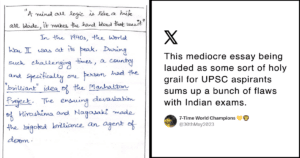 "A mind all logic is like a knife
all blade, it makes the hand bleed that uses it"
In the 1940s, the World
War II was at its peak. During
such challenging times, a country
and specifically one person had the
"brilliant" idea of the Manhattan
Project. The ensuing devastation
of Hiroshima and Nagasaki made
the bigoted brilliance an agent of
doom.
X
This mediocre essay being
lauded as some sort of holy
grail for UPSC aspirants
sums up a bunch of flaws
with Indian exams.
7-Time World Champions